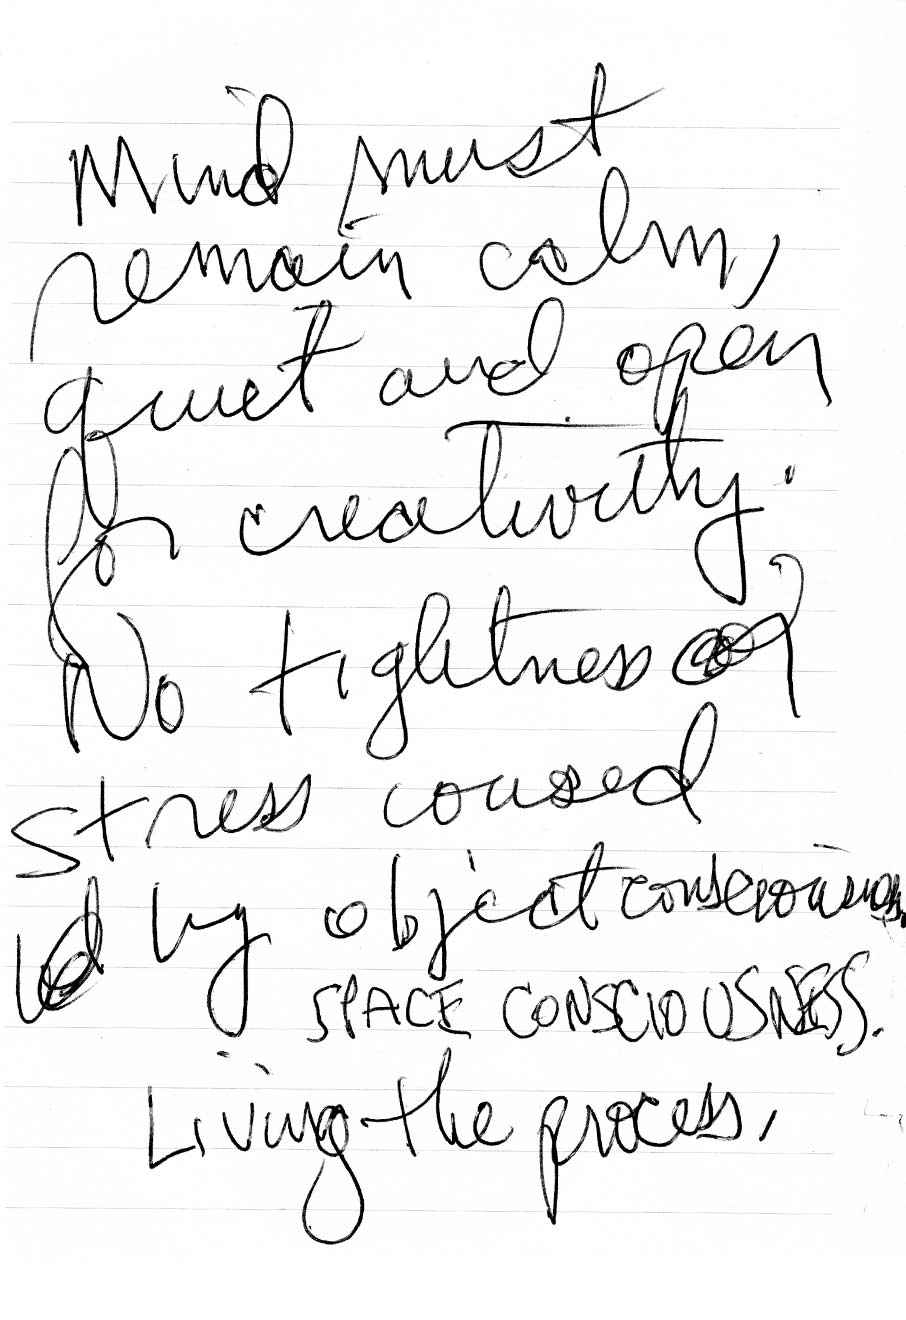 Mind must
remain calm,
quiet and open
for creativity.
No tightness or
stress caused
by object consciousness.
SPACE CONSCIOUSNESS.
Living the process.